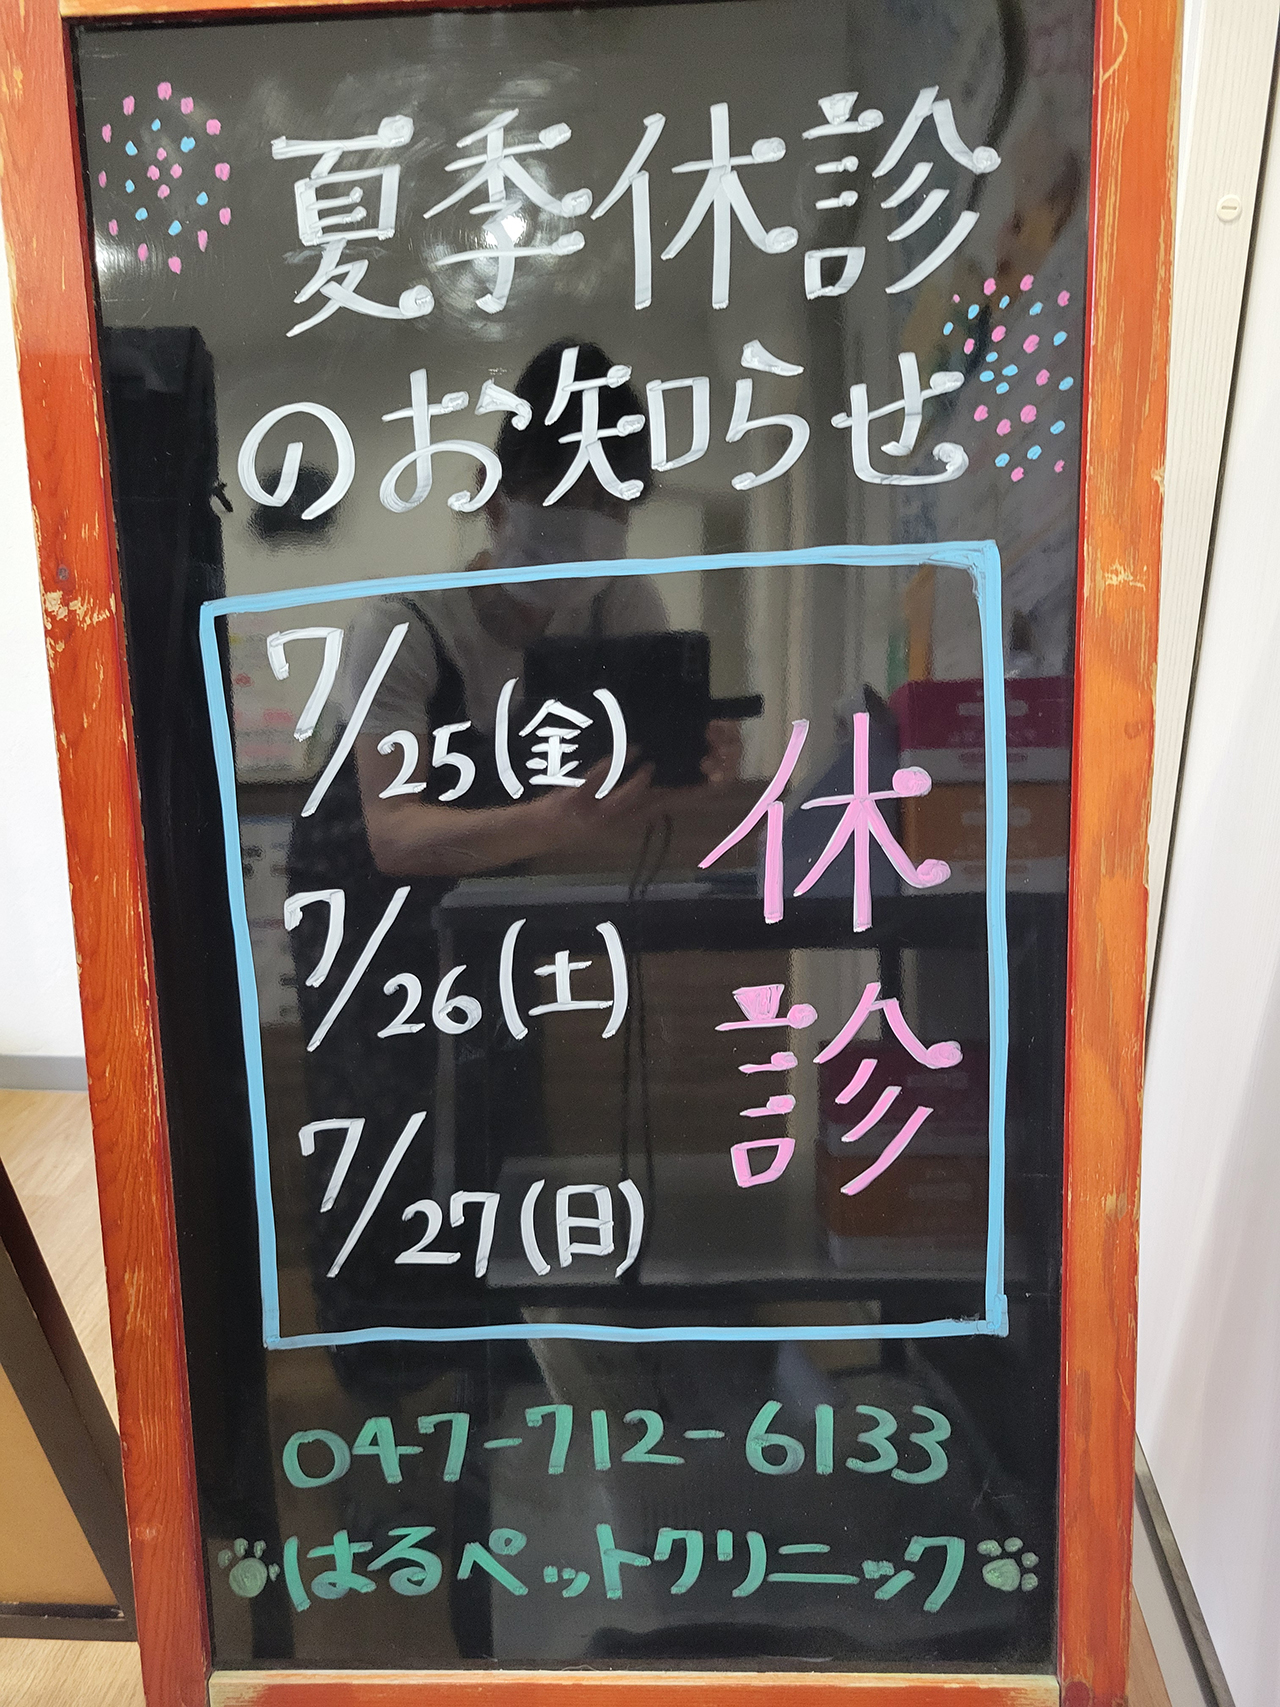 夏季休診
のお知らせ
7/25(金)
7/26(土)
7/27(日)
休診
047-712-6133
はるペットクリニック